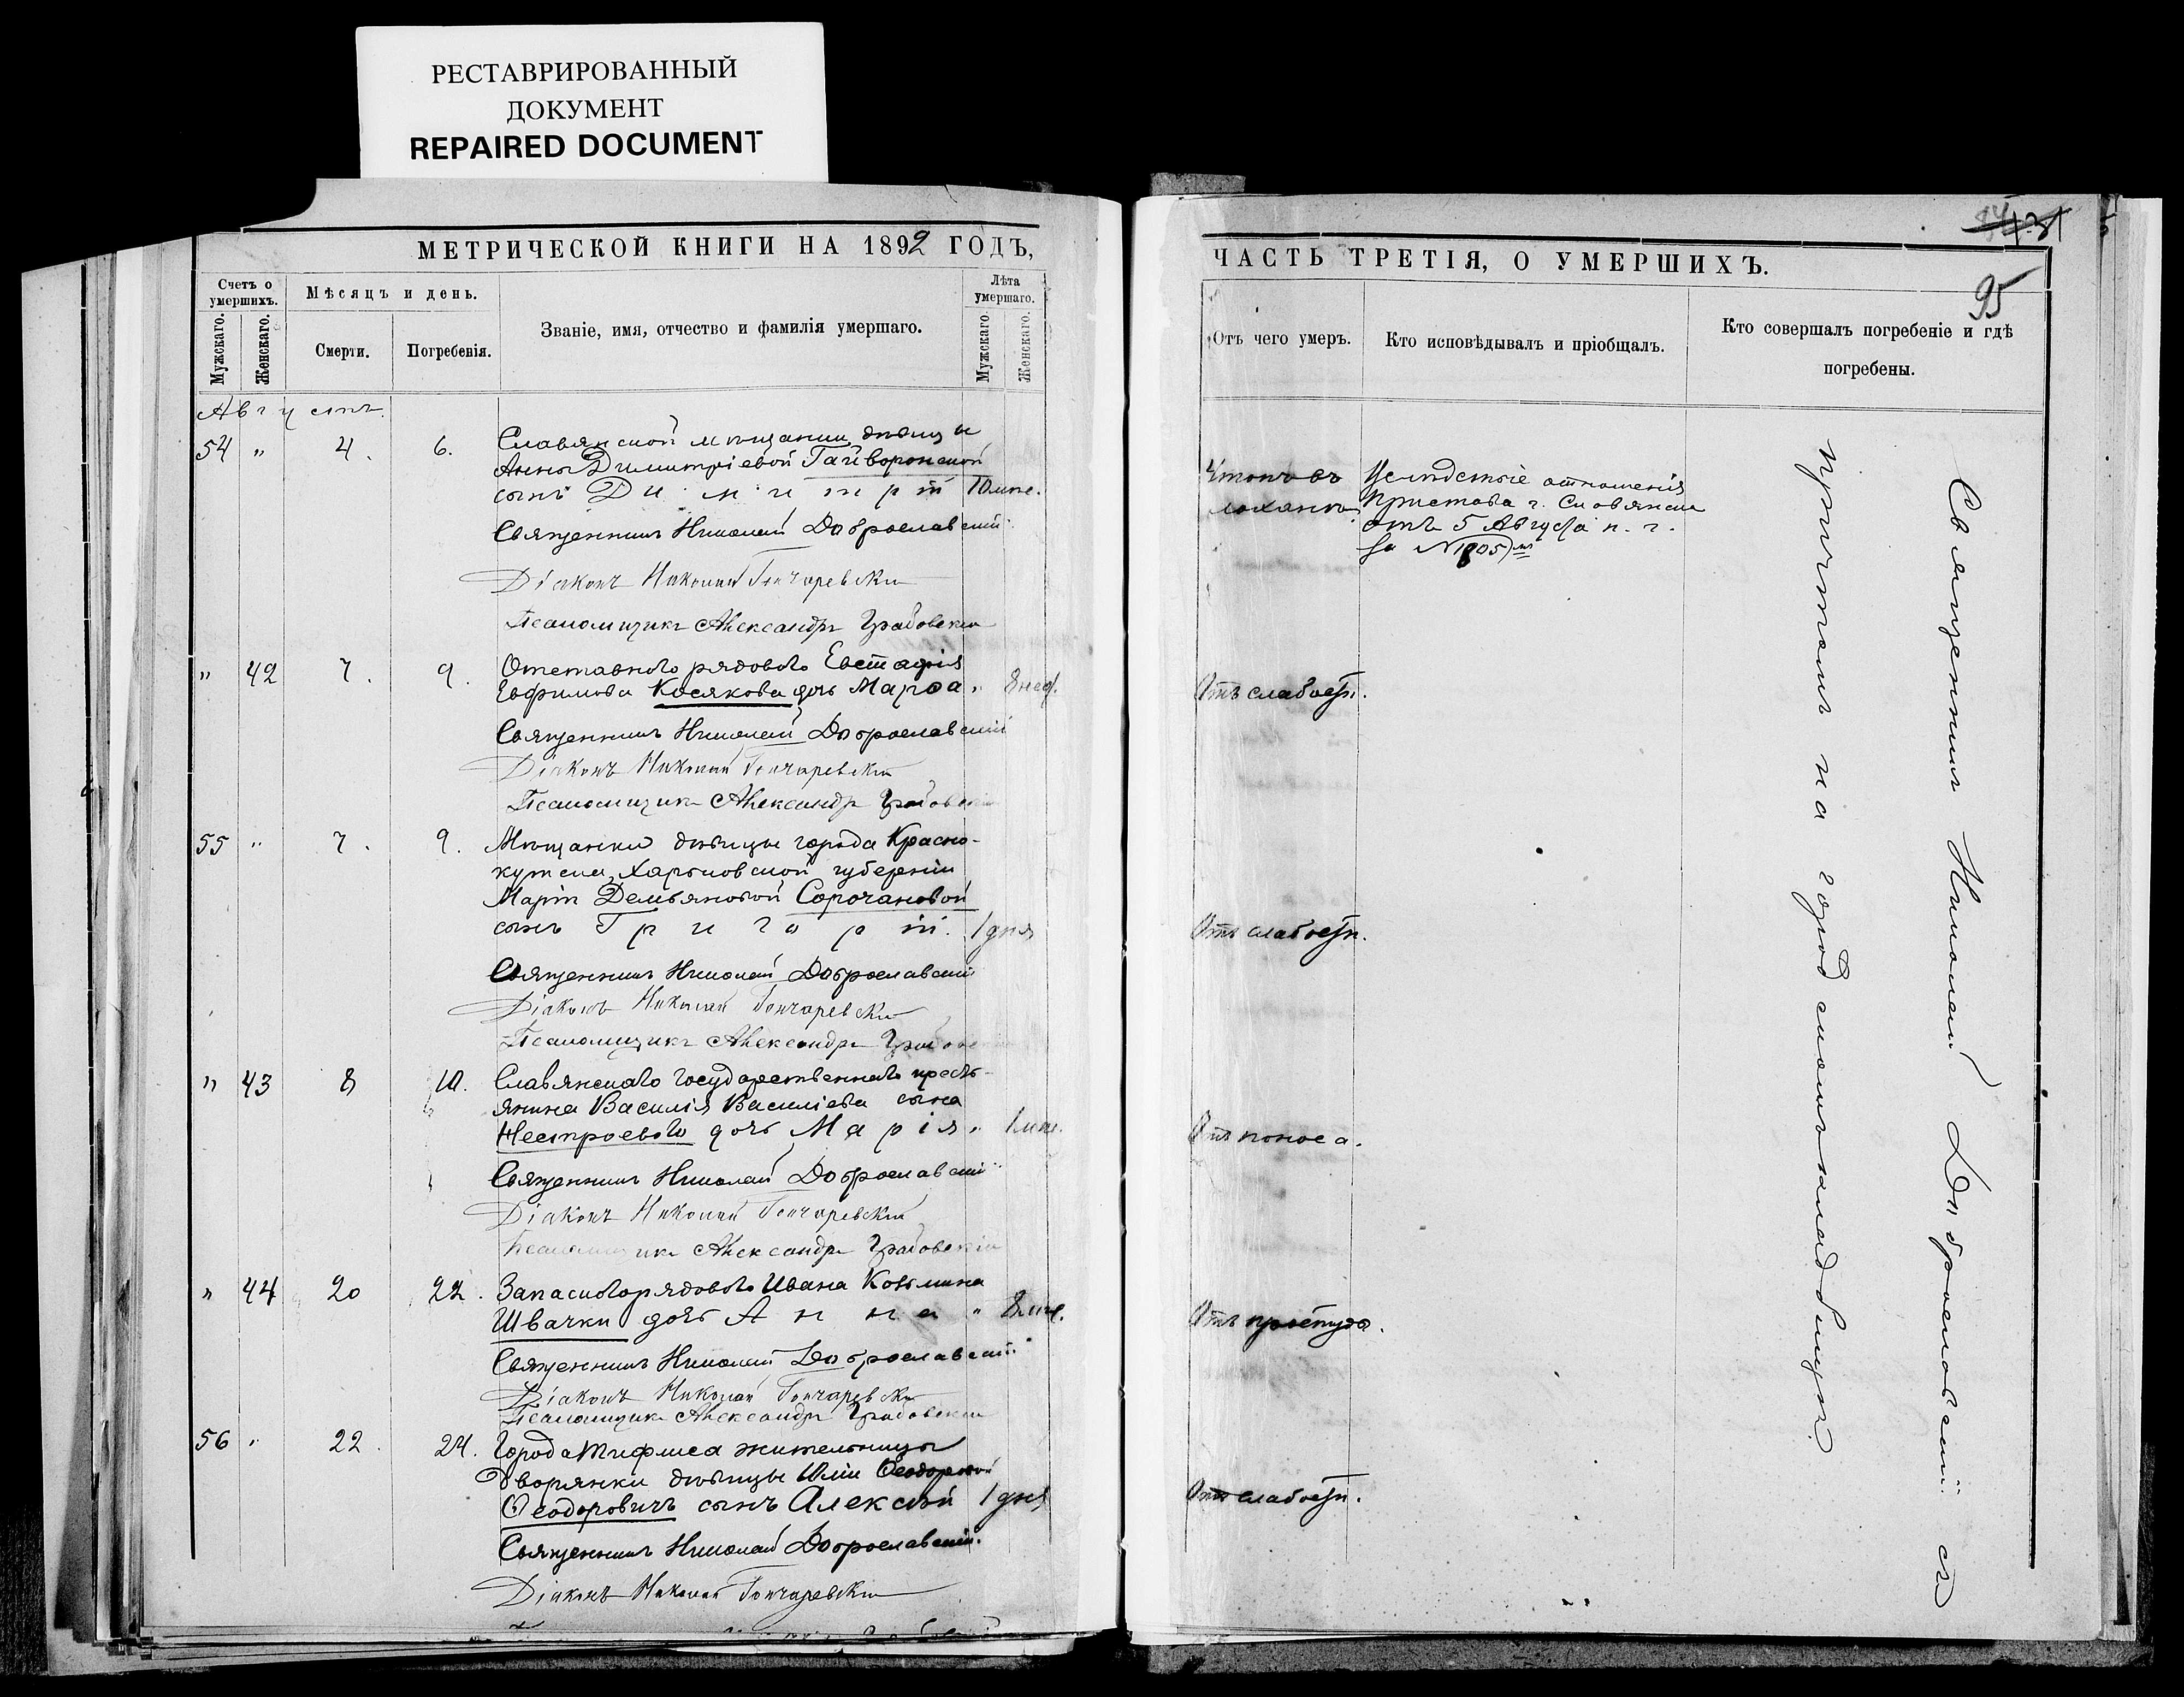 РЕСТАВРИРОВАННЫЙ
ДОКУМЕНТ
REPAIRED DOCUMENT
МЕТРИЧЕСКОЙ КНИГИ НА 1892 ГОДЪ,
Счетъ о умершихъ.
Мужскаго.
Женскаго.
Мѣсяцъ и день.
Смерти.
Погребенія.
Званіе, имя, отчество и фамилія умершаго.
Лѣта умершаго.
Мужскаго
Женскаго.
Августъ.
54 " 4. 6. Славянской мѣщанки дѣвицы
Анны Димитріевой Гайворонской
сынъ Димитрій 10 мѣс.
Священникъ Николай Доброславскій
Діаконъ Николай Гончаревскій
Псаломщикъ Александръ Грабовскій
" 42 7. 9. Отставного рядового Евстафія
Евфимова Косякова дочь Марфа " 8 нед.
Священникъ Николай Доброславскій
Діаконъ Николай Гончаревскій
Псаломщикъ Александръ Грабовскій
55 " 7. 9. Мѣщанки дѣвицы города Красно-
кутска, Харьковской губерніи
Маріи Демьяновой Сорочановой
сынъ Григорій. 1 дня
Священникъ Николай Доброславскій
Діаконъ Николай Гончаревскій
Псаломщикъ Александръ Грабовскій
" 43 8 10. Славянскаго государственнаго кресть-
янина Василія Василіева сына
Нестроевого дочь Марія " 1 мѣс.
Священникъ Николай Доброславскій
Діаконъ Николай Гончаревскій
Псаломщикъ Александръ Грабовскій
" 44 20 22. Запасного рядового Ивана Козьмина
Швачки дочь Анна " 8 мѣс.
Священникъ Николай Доброславскій
Діаконъ Николай Гончаревскій
Псаломщикъ Александръ Грабовскій
56 " 22. 24. Города Тифлиса жительницы
дворянки дѣвицы Юліи Ѳеодоровой
Ѳеодоровичъ сынъ Алексѣй 1 дня
Священникъ Николай Доброславскій.
Діаконъ Николай Гончаревскій
ЧАСТЬ ТРЕТІЯ, О УМЕРШИХЪ.
95
Отъ чего умеръ.
Кто исповѣдывалъ и пріобщалъ.
Кто совершалъ погребеніе и гдѣ погребены.
въ
лоханкѣ.
Вслѣдствіе отношенія
Пристава г. Славянска
отъ 5 Августа н. г.
за №
Отъ слабости.
Отъ слабости.
Отъ поноса.
Отъ простуды.
Отъ слабости.
Священникъ Николай Доброславскій съ
причтомъ на городскомъ кладбищѣ